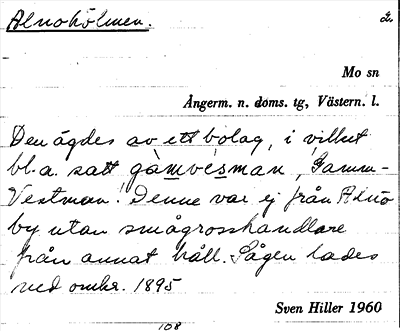 Alnöholmen.
2.
Mo sn
Ångerm. n. doms. tg, Västern. l.
Den ägdes av ett bolag, i vilket
bl.a. satt gàmvésman, Gamm-
Vestman! Denne var ej från Alnö
by utan smågrosshandlare
från annat håll. Sågen lades
ned omkr. 1895
Sven Hiller 1960
108